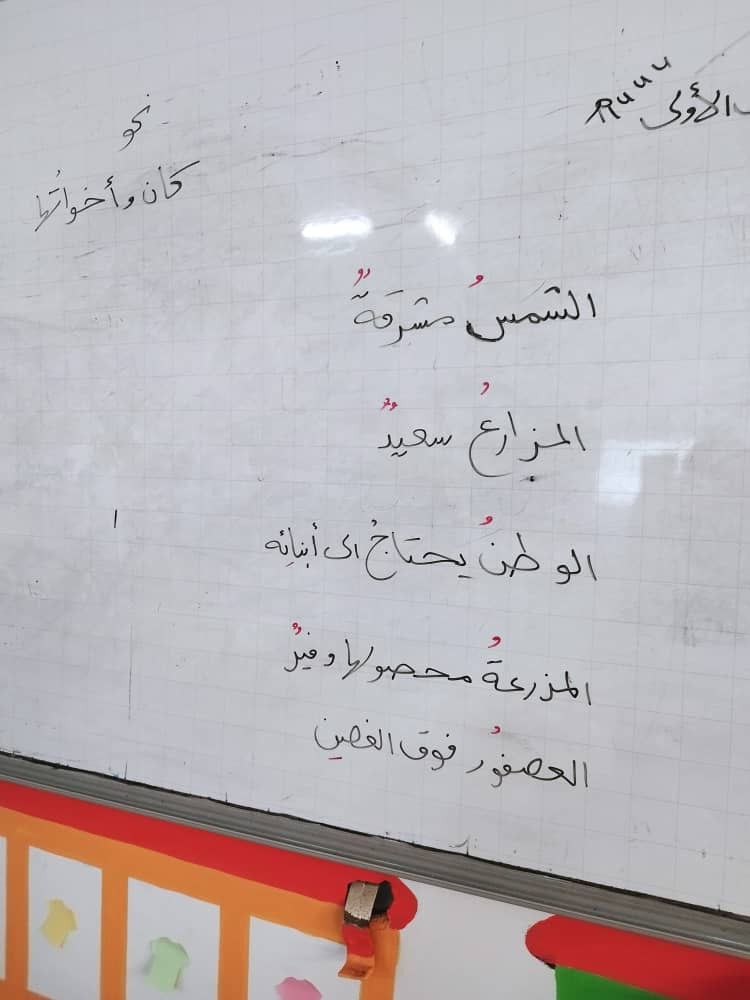 الأولى
نحو
كان وأخواتُها
الشمسُ مشرقةٌ
المزارعُ سعيدٌ
الوطنُ يحتاجُ الى أبنائِه
المزرعةُ محصولها وفيرٌ
العصفورُ فوق الغصنِ